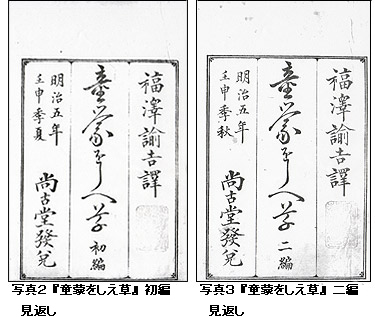 福澤諭吉譯
童蒙をしへ草 初編
明治五年
壬申季夏
尚古堂發兌
写真2『童蒙をしえ草』初編
見返し
福澤諭吉譯
童蒙をしへ草 二編
明治五年
壬申季秋
尚古堂發兌
写真3『童蒙をしえ草』二編
見返し